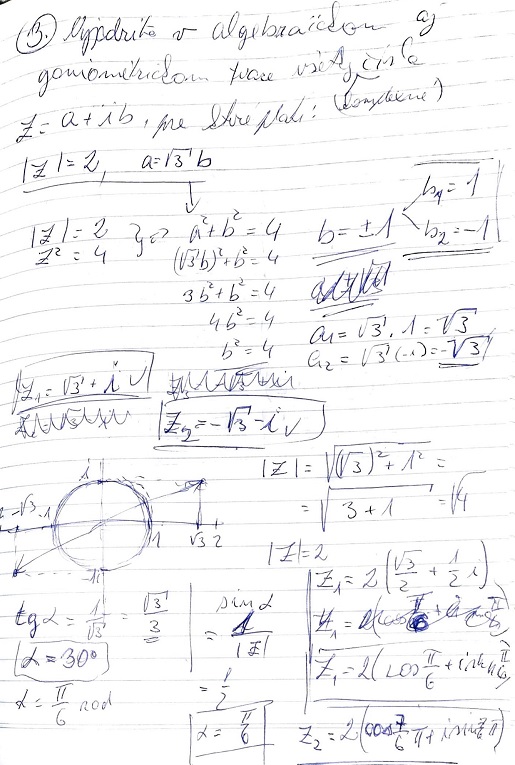 3. Vyjadrite v algebraickom aj
goniometrickom tvare všetky čísla
(komplexné)
z = a + ib, pre ktoré platí:
|z| = 2, a = √3 b
|z| = 2
z² = 4
a² + b² = 4
(√3b)² + b² = 4
3b² + b² = 4
4b² = 4
b² = 4
b = ±1
b₁ = 1
b₂ = -1
a₁ = √3 · 1 = √3
a₂ = √3 (-1) = -√3
z₁ = √3 + i ✓
z₂ = -√3 - i ✓
|z| = √((√3)² + 1²) =
= √(3 + 1) = √4
|z| = 2
i
-√3
-1
1
√3
2
-i
tg α = 1/√3 = √3/3
α = 30°
α = π/6 rad
sin α
= 1/|z|
= 1/2
α = π/6
z₁ = 2(√3/2 + 1/2 i)
z₁ = 2(cos π/6 + i sin π/6)
z₂ = 2(cos 7/6 π + i sin 7/6 π)